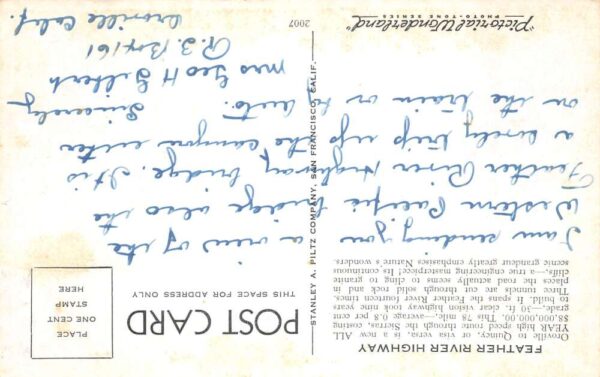 FEATHER RIVER HIGHWAY
Oroville to Quincy, or visa versa, is a new ALL
YEAR high speed route through the Sierras, costing
$8,000,000.00. This 78 mile,—average 0.8 per cent
grade,—30 ft. clear vision highway took nine years
to build. It spans the Feather River fourteen times.
Three tunnels are cut through solid rock and in
places the road actually seems to cling to granite
cliffs—a true engineering masterpiece! Its continuous
scenic grandeur greatly emphasises Nature's wonders.
POST CARD
THIS SPACE FOR ADDRESS ONLY
PLACE
ONE CENT
STAMP
HERE
STANLEY A. PILTZ COMPANY, SAN FRANCISCO, CALIF.
I am sending you
a view of the
Western Pacific bridge also the
Feather River Highway bridge. It is
a lovely trip up the canyon either
on the train or by auto.
Sincerely
Mrs Geo H Gilbert
R. 3. Box 161
Oroville Calif.
"Pictorial Wonderland"
PHOTO-TONE SERIES
2007